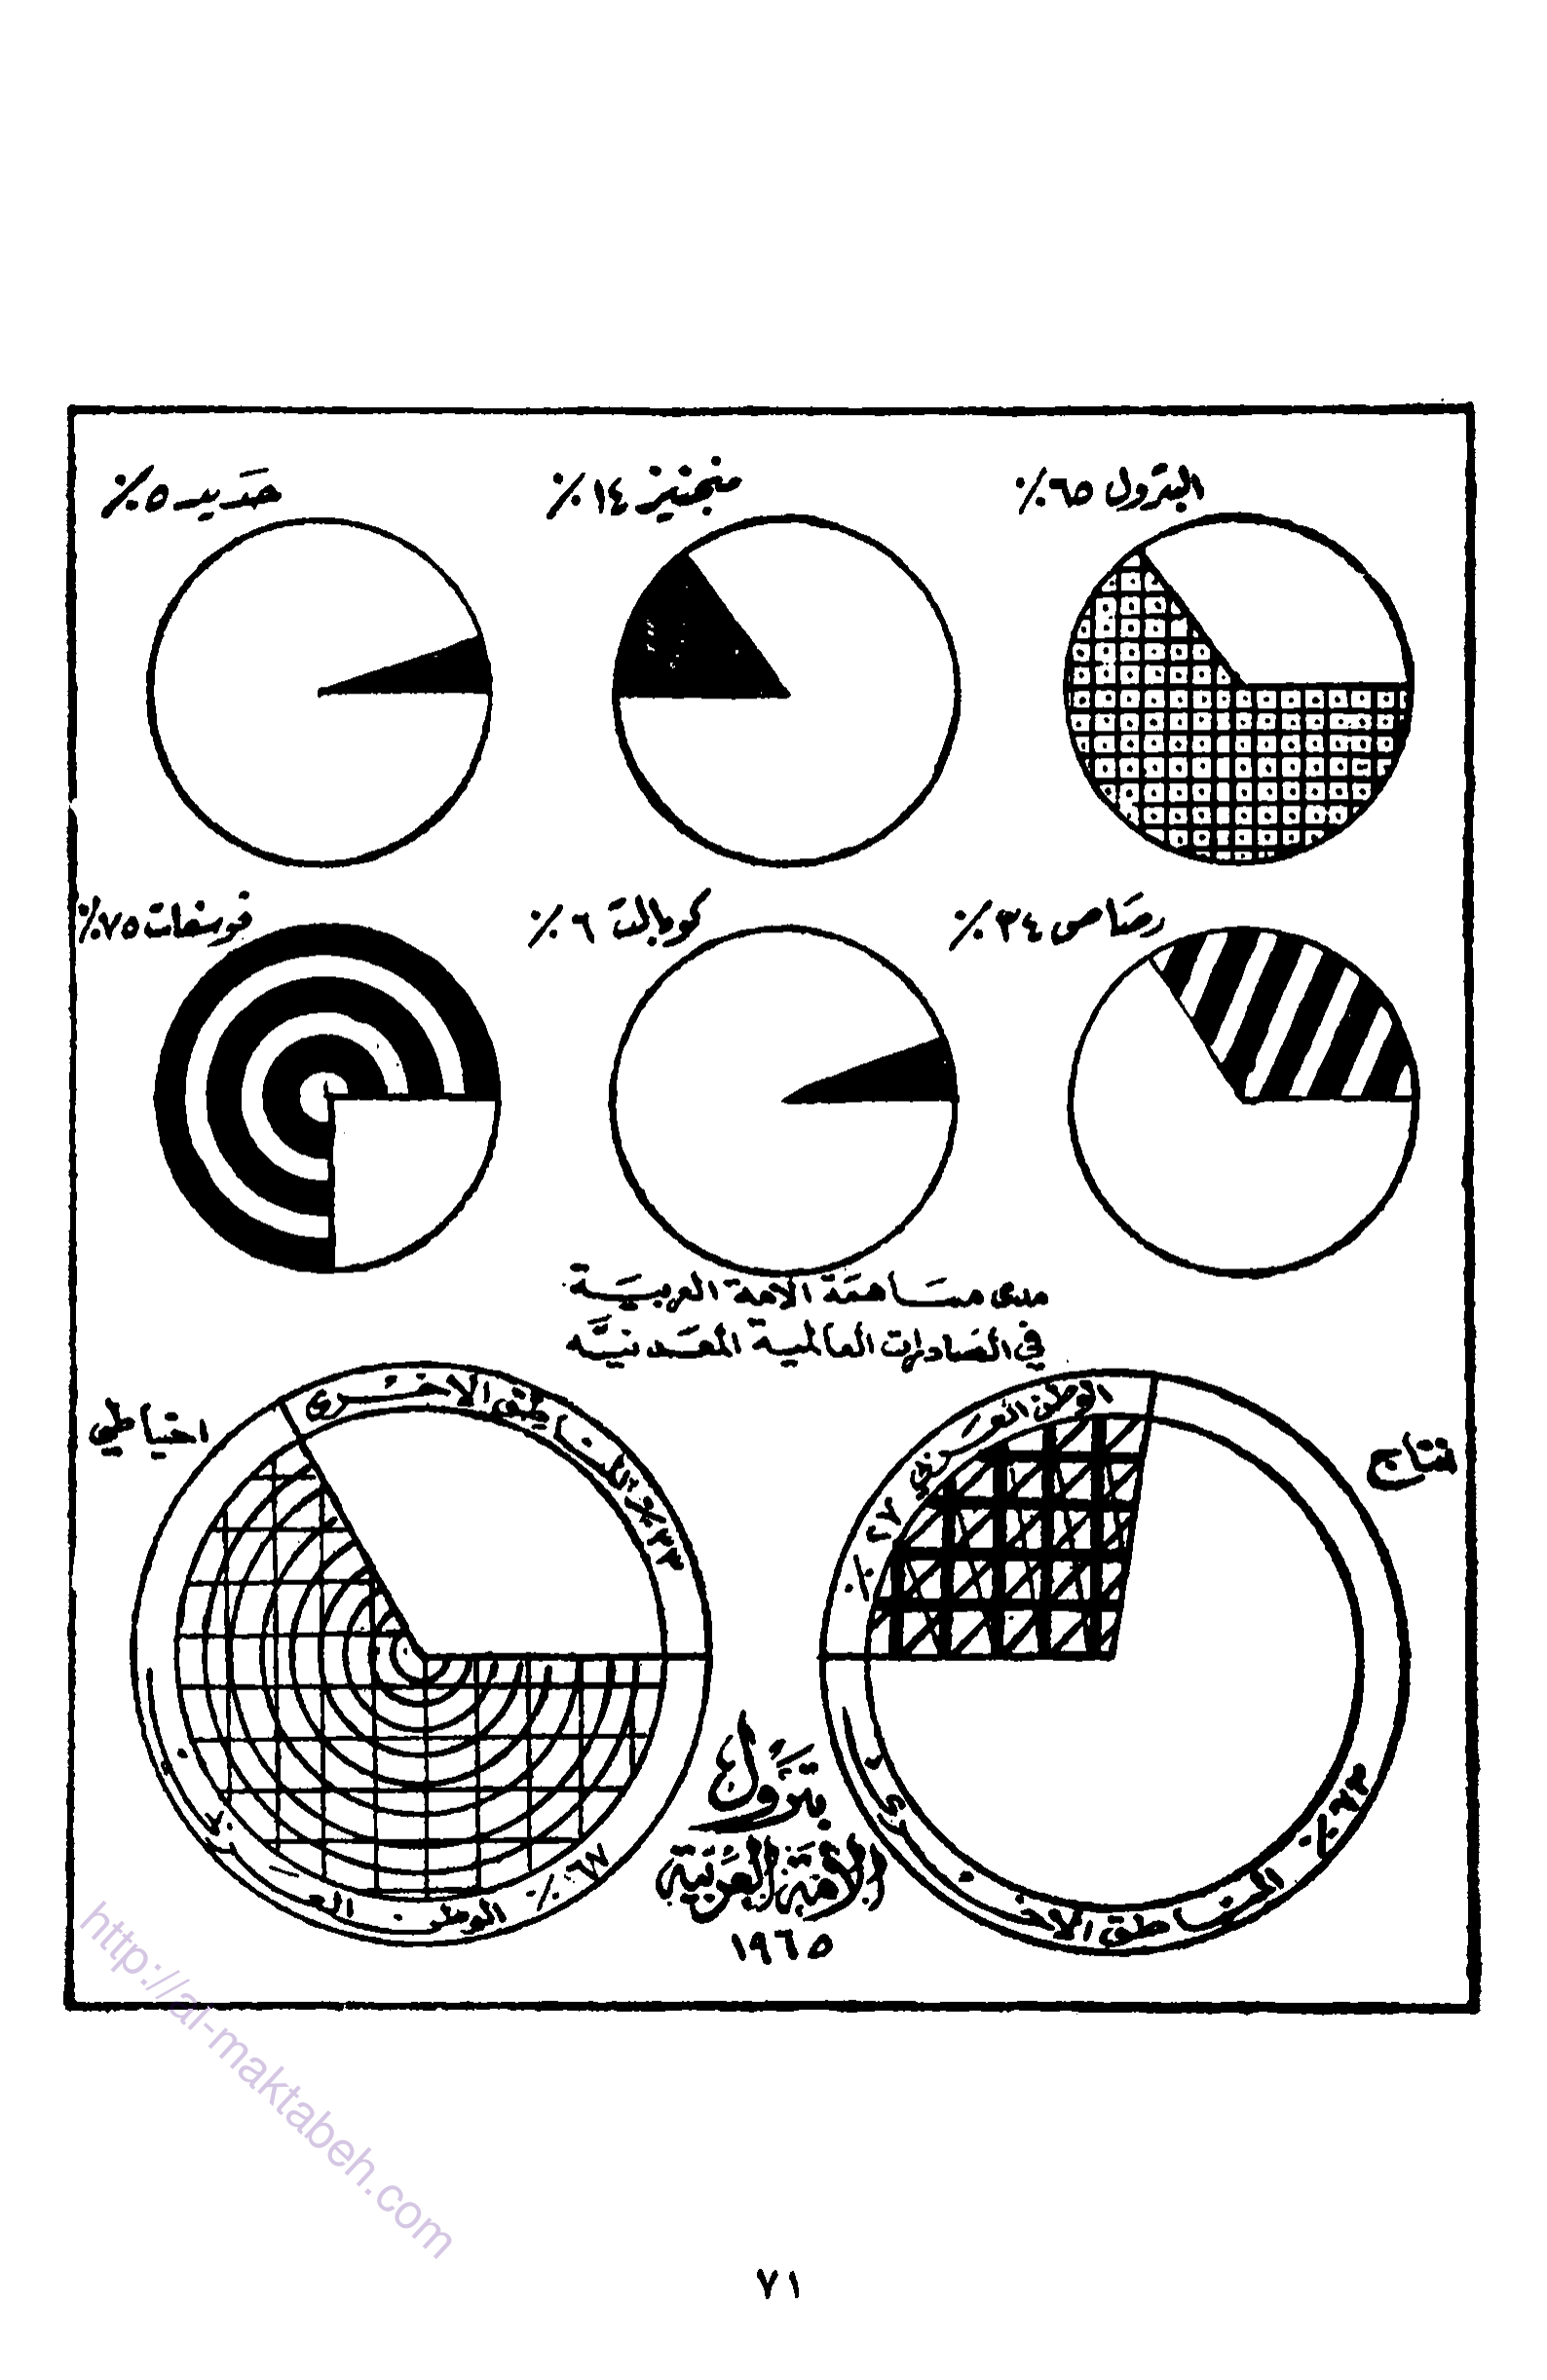 البترول ٦٥٪
منجنيز ١٤٪
حديد ٥٪
رصاص ٣٤٪
كوبالت ٦٪
فوسفات ٧٥٪
مدى مساهمة الامة العربية
في الصادرات العالمية المعدنية
نتاج
الوطن العربي ٢٧٪
المناطق الاخرى
احتياطي
المناطق الاخرى ٣٣٪
الوطن العربي ٦٧٪
بترول
الأمة العربية
١٩٦٥
http://al-maktabeh.com
٧١